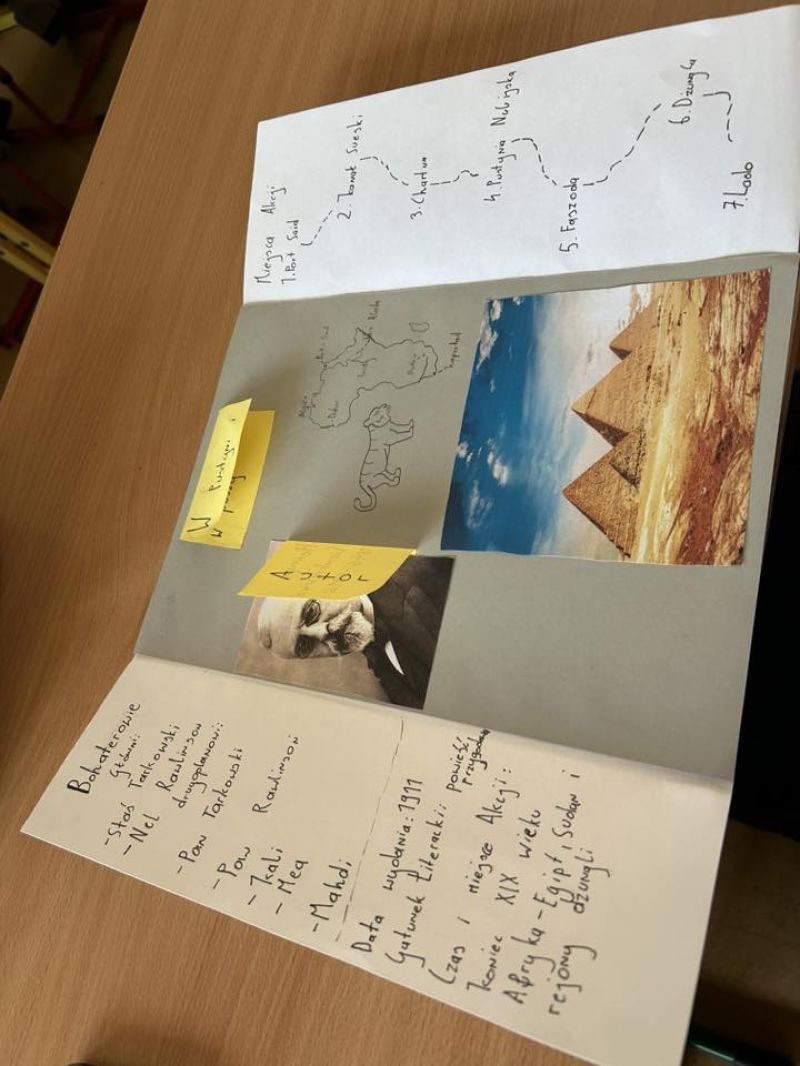 Bohaterowie
Główni:
-Staś Tarkowski
-Nel Rawlinson
drugoplanowi:
-Pan Tarkowski
-Pan Rawlinson
-Kali
-Mea
-Mahdi
Data wydania: 1911
Gatunek Literacki: powieść
przygodowa
Czas i miejsce Akcji:
koniec XIX wieku
Afryka-Egipt, Sudan i
rejony dżungli
W Pustyni i
w puszczy
Autor
Miejsca Akcji
1.Port Said
2. Kanał Sueski
3.Chartum
4.Pustynia Nubijska
5.Faszoda
6.Dżungla
7.Lado